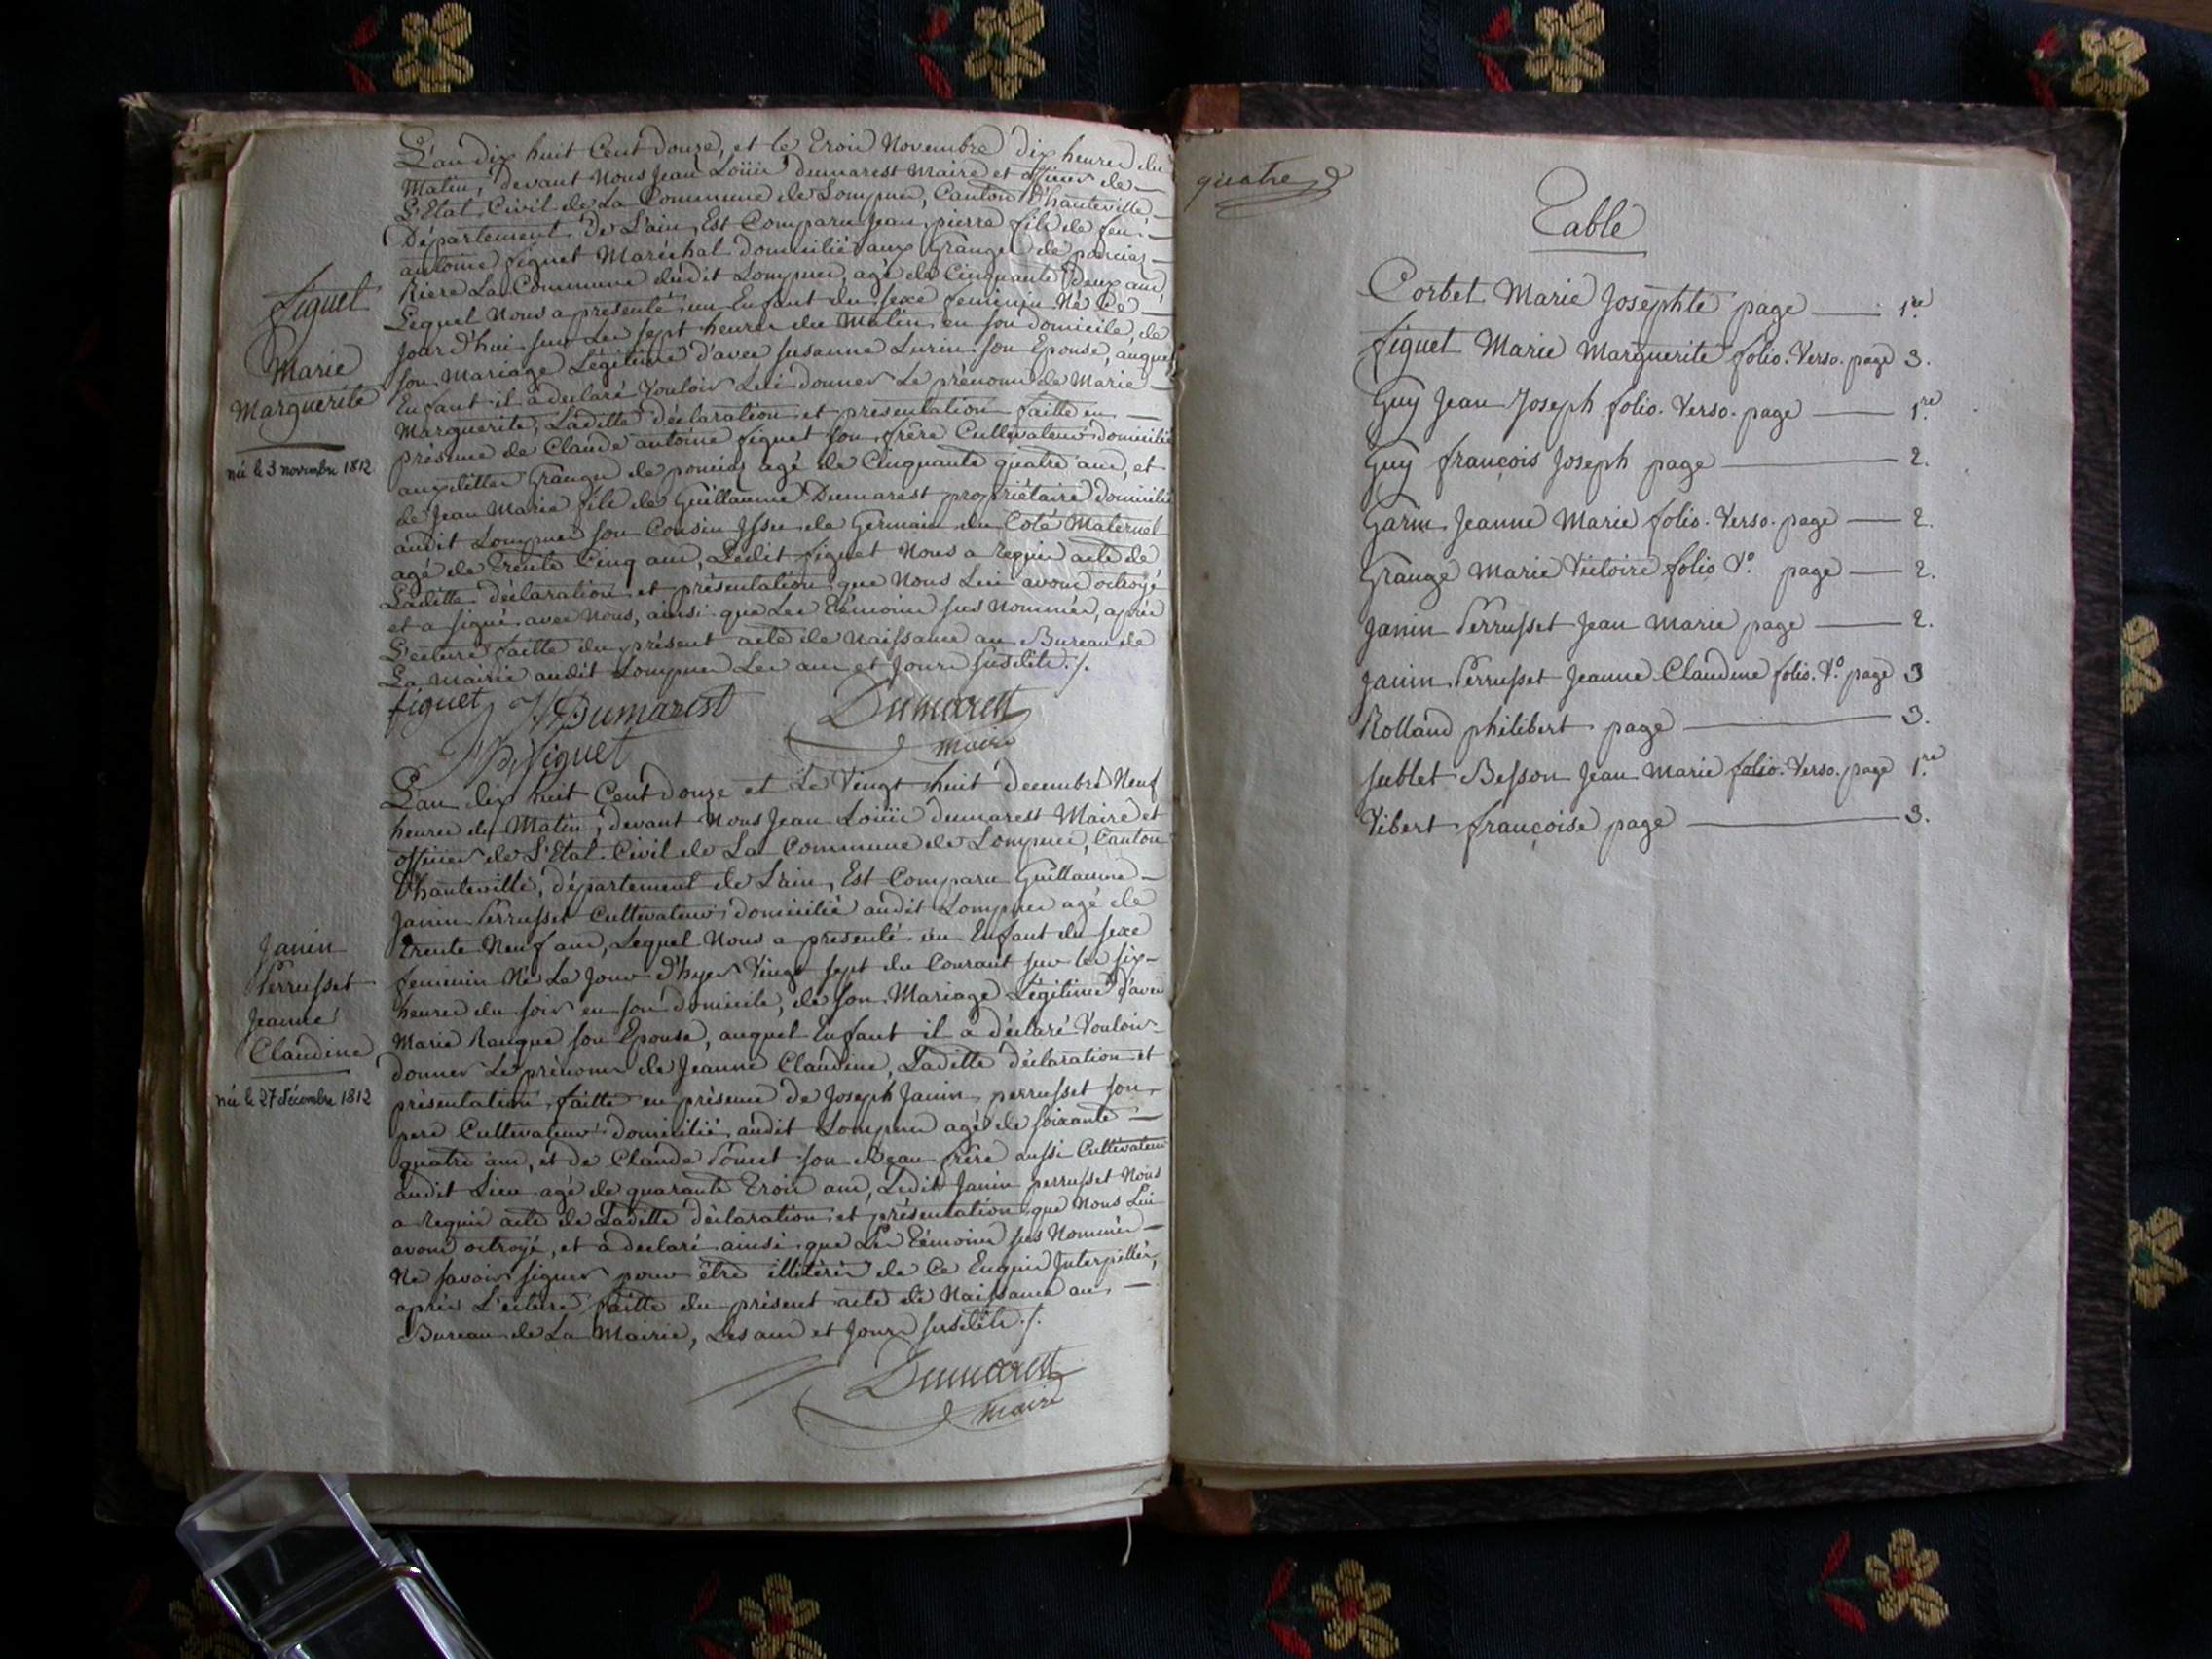 L'an dix huit Cent douze, et le Trois Novembre dix heures du
Matin, devant Nous Jean Louis dumarest Maire et officier de
L'Etat Civil de La Commune de Lompnes, Canton D'hauteville
Département De L'ain, Est Comparu Jean pierre fils de feu
antoine figuet Maréchal domicilié aux Granges de
Riere La Commune dudit Lompnes, agé de Cinquante Deux ans,
Lequel Nous a présenté un Enfant du sexe feminin Né Ce
Jour d'hui sur Les sept heures du Matin en son domicile, de
son Mariage Légitime d'avec susanne son Epouse, auquel
Enfant il a déclaré Vouloir Lui donner Le prénom de Marie
Marguerite, Laditte déclaration et présentation faitte en
présence de Claude antoine figuet son frère Cultivateur domicilié
auxdittes Granges de agé de Cinquante quatre ans, et
de Jean Marie fils de Guillaume Dumarest propriétaire domicilié
audit Lompnes son Cousin Issu de Germain du Coté Maternel
agé de Trente Cinq ans, Ledit figuet Nous a Requis acte de
Laditte déclaration et présentation que Nous Lui avons octroyé
et a signé avec Nous, ainsi que Les Témoins sus Nommés, après
L'ecture faitte du présent acte de Naissance au Bureau de
La Mairie audit Lompnes Les an et Jour susdits ./.
figuet J Dumarest Dumarest
Figuet maire
figuet
Marie
Marguerite
née le 3 novembre 1812
L'an dix huit Cent douze et Le Vingt huit decembre Neuf
heures du Matin, devant Nous Jean Louis dumarest Maire et
officier de L'Etat Civil de La Commune de Lompnes, Canton
D'hauteville, département de L'ain, Est Comparu Guillaume
Janin Perrusset Cultivateur domicilié audit Lompnes agé de
trente Neuf ans, Lequel Nous a présenté un Enfant du sexe
feminin Né Le Jour d'hyer Vingt sept du Courant sur les six
heures du soir en son domicile, de son Mariage Légitime d'avec
Marie Ranque son Epouse, auquel Enfant il a déclaré Vouloir
donner Le prénom de Jeanne Claudine, Laditte déclaration et
présentation faitte en présence de Joseph Janin perrusset son
pere Cultivateur domicilié audit Lompnes agé de soixante
quatre ans, et de Claude son Beau frère aussi Cultivateur
audit Lieu agé de quarante Trois ans, Ledit Janin perrusset Nous
a Requis acte de Laditte déclaration et présentation que Nous Lui
avons octroyé, et a declaré ainsi que Les Témoins sus Nommés
Ne savoir signer pour être illitérés de Ce Enquis Interpellés,
après L'ecture faitte du présent acte de Naissance au
Bureau de La Mairie, Les an et Jour susdits ./.
Dumarest
maire
Janin
Perrusset
Jeanne
Claudine
née le 27 décembre 1812
quatre
Table
Corbet Marie Josephte page 1re
figuet Marie Marguerite folio. Verso. page 3.
Guy Jean Joseph folio. Verso. page 1re
Guy françois Joseph page 2.
Garin Jeanne Marie folio. Verso. page 2.
Grange Marie Victoire folio Vo. page 2.
Janin Perrusset Jean Marie page 2.
Janin Perrusset Jeanne Claudine folio. Vo page 3
Rolland philibert page 3.
sublet Besson Jean Marie folio. Verso. page 1re
Vibert françoise page 3.